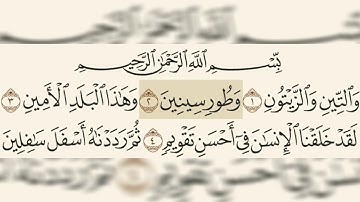 بِسْمِ ٱللَّهِ ٱلرَّحْمَٰنِ ٱلرَّحِيمِ
وَٱلتِّينِ وَٱلزَّيْتُونِ ١ وَطُورِ سِينِينَ ٢ وَهَٰذَا ٱلْبَلَدِ ٱلْأَمِينِ ٣
لَقَدْ خَلَقْنَا ٱلْإِنسَٰنَ فِىٓ أَحْسَنِ تَقْوِيمٍ ٤ ثُمَّ رَدَدْنَٰهُ أَسْفَلَ سَٰفِلِينَ